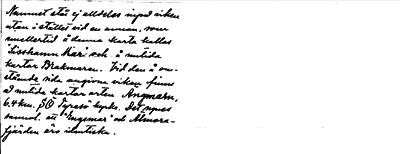 Namnet står ej alldeles invid viken
utan i stället vid en annan, som
emellertid å denna karta kallas
Lisshamn Kari och å nutida
kartor Brakmaren. Vid den å
stående sida angivna viken finns
å nutida kartor orten Angmarn,
6.4 km. SO Tyresö kyrka. Det synes
sannol. att "Ingemar" och Almora-
fjärden äro identiska.